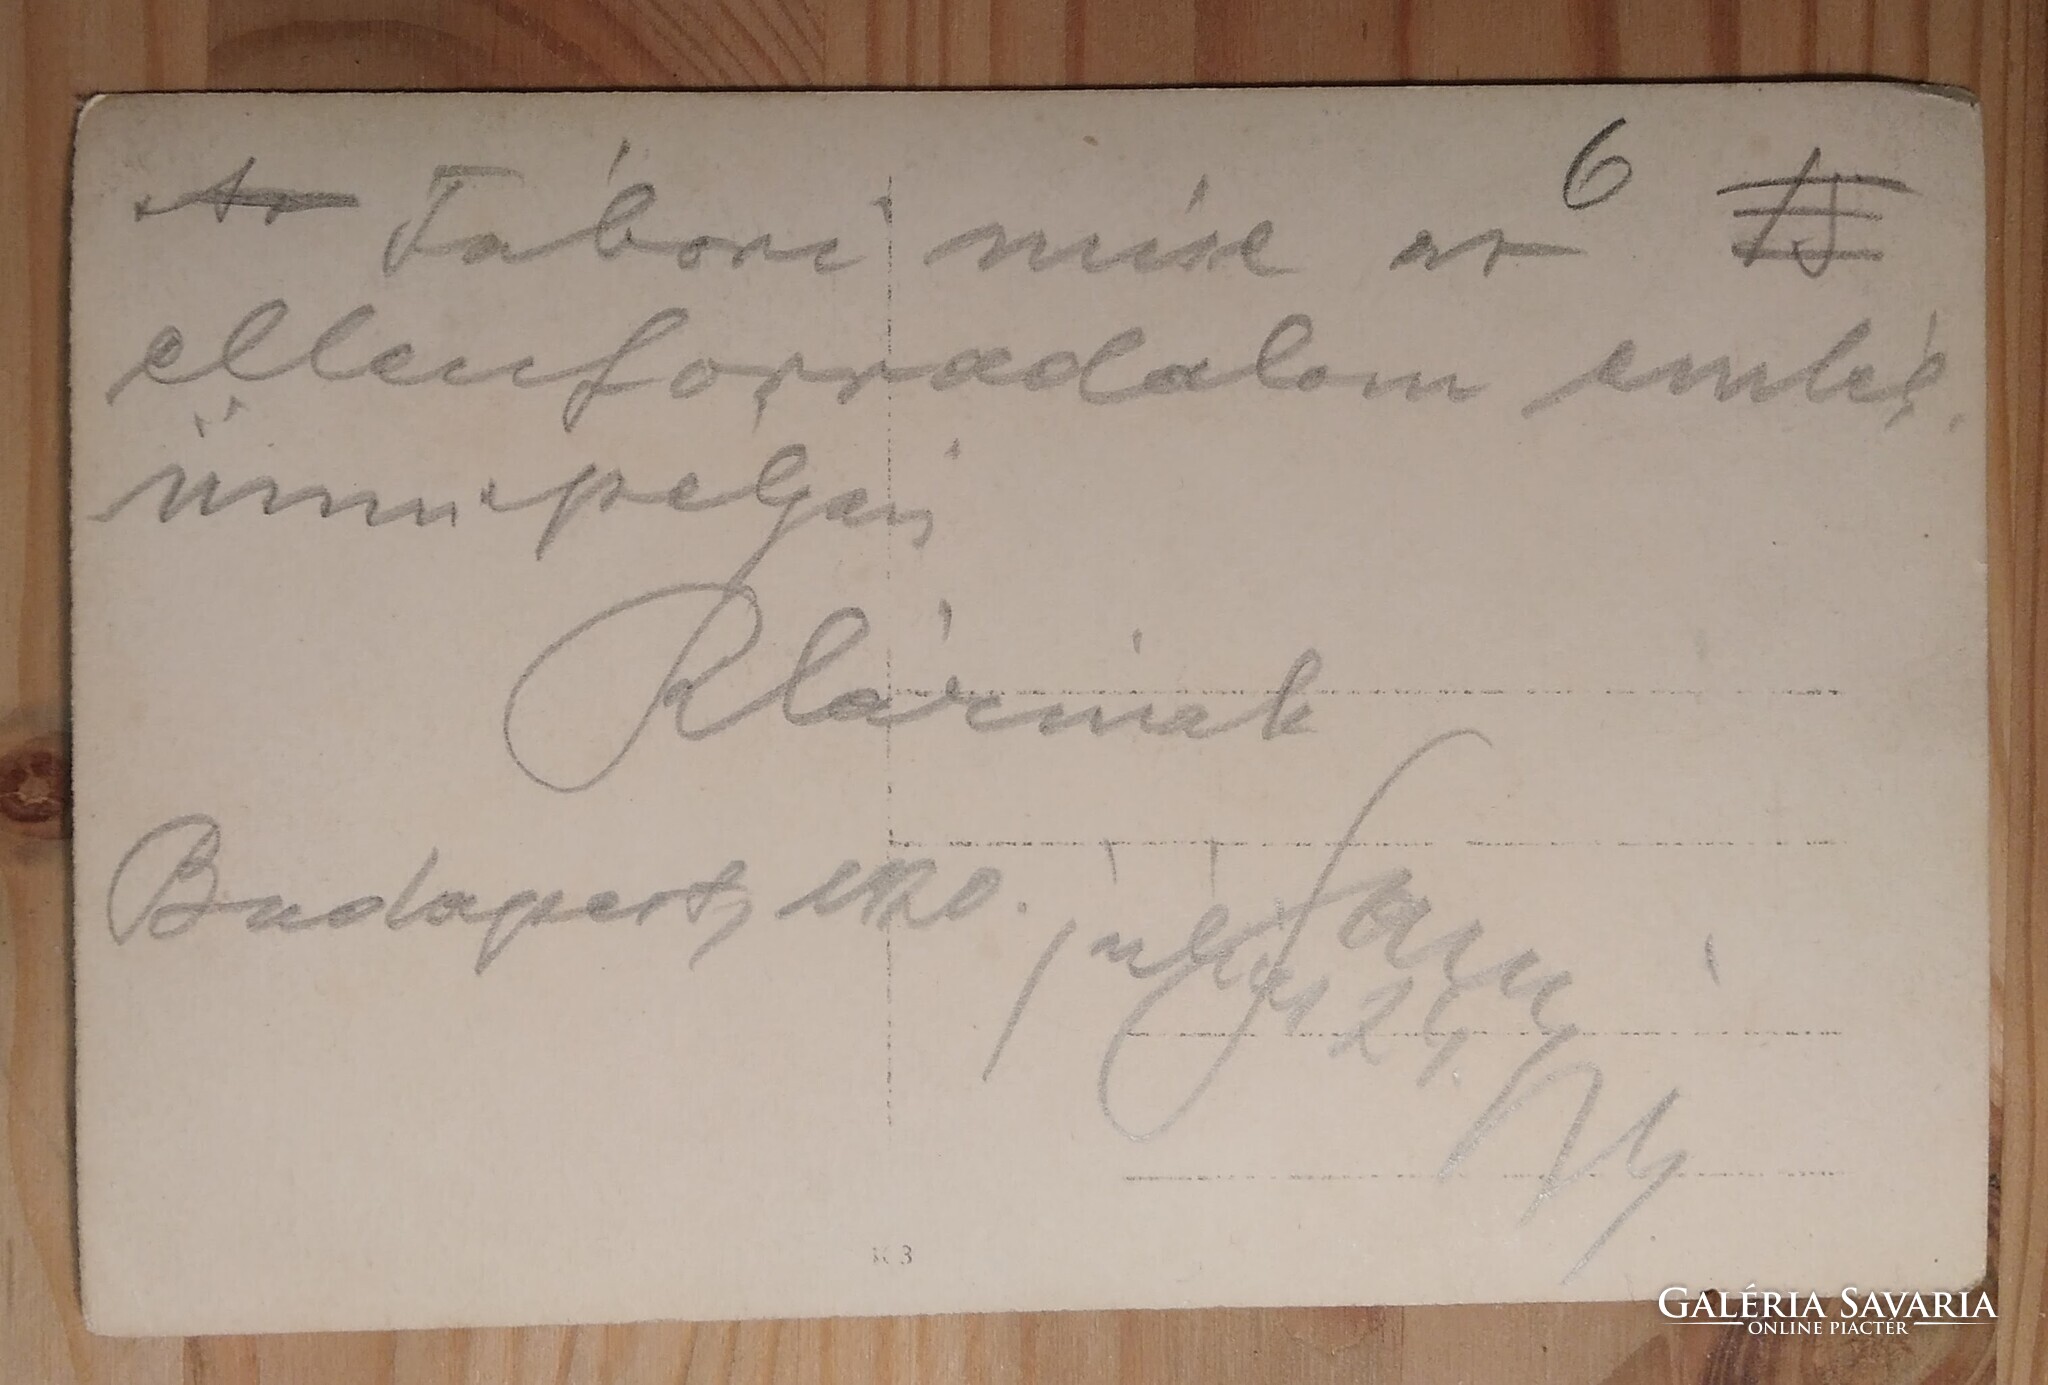 Tábori mise az 6
ellenforradalom emlék
ünnepélyén
Klárinak
Budapest, 1920.
július 24.
103
GALÉRIA SAVARIA
ONLINE PIACTÉR